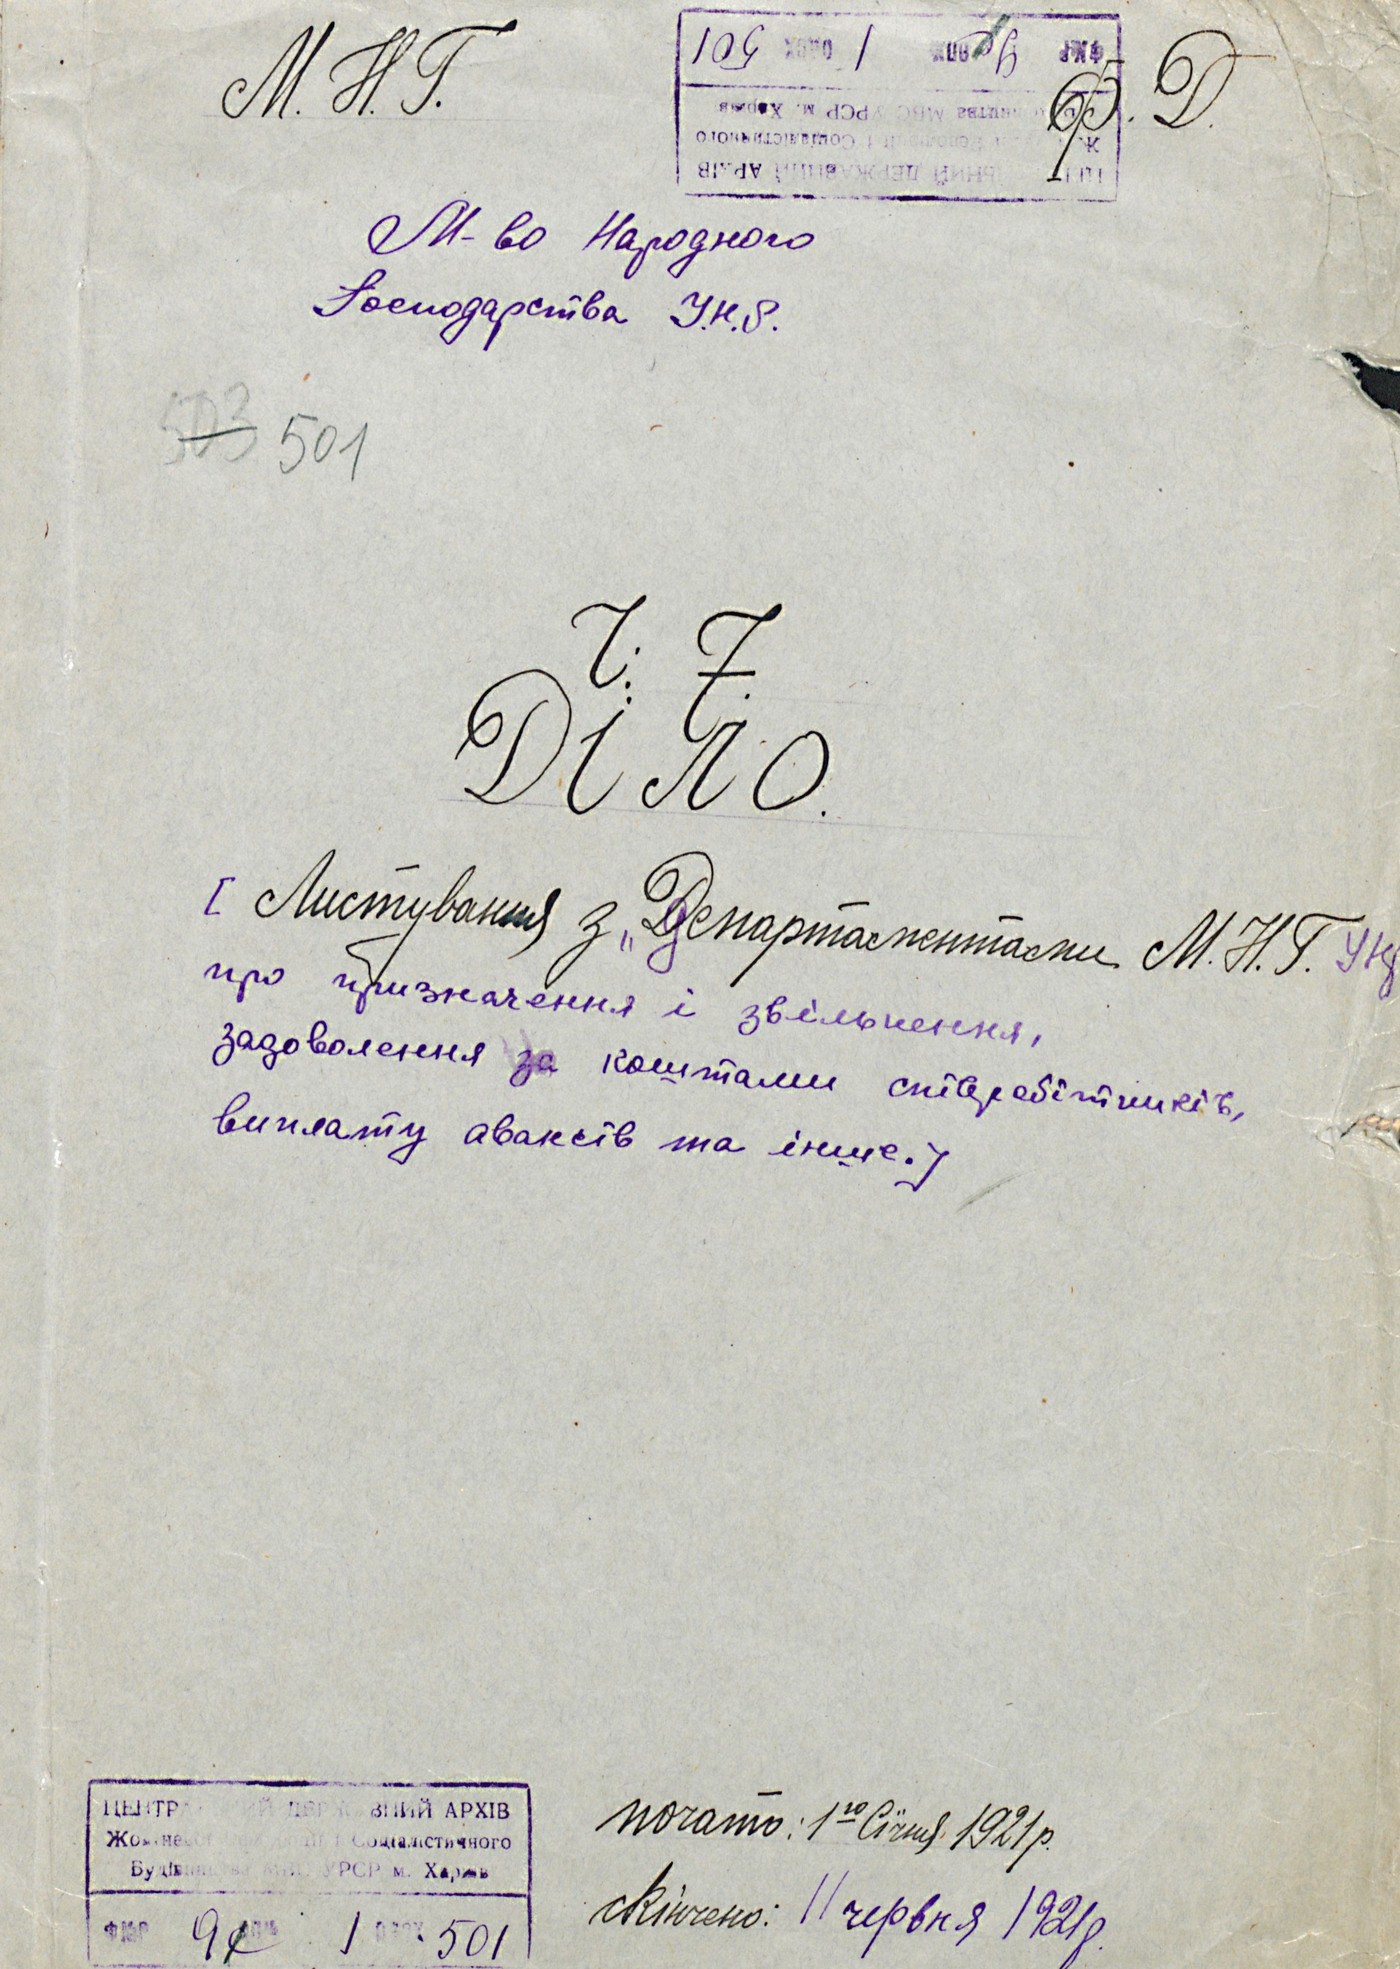 М. Н. Г.
Ф. Д.
ЦЕНТРАЛЬНИЙ ДЕРЖАВНИЙ АРХІВ
Жовтневої Революції і Соціалістичного
Будівництва МВС УРСР м. Харків
ФКР 9 ОПК 1 ОДЗХ 501
М-во Народного
Господарства У.Н.Р.
503 501
Ч. 7.
ДІЛО.
[ Листування з „Департаментами М. Н. Г. УНР
про призначення і звільнення,
задоволення за коштами співробітників,
виплату авансів та інше.]
почато: 1го Січня 1921 р.
скінчено: 11 червня 1921 р.
ЦЕНТРАЛЬНИЙ ДЕРЖАВНИЙ АРХІВ
Жовтневої Революції і Соціалістичного
Будівництва МВС УРСР м. Харків
1 501